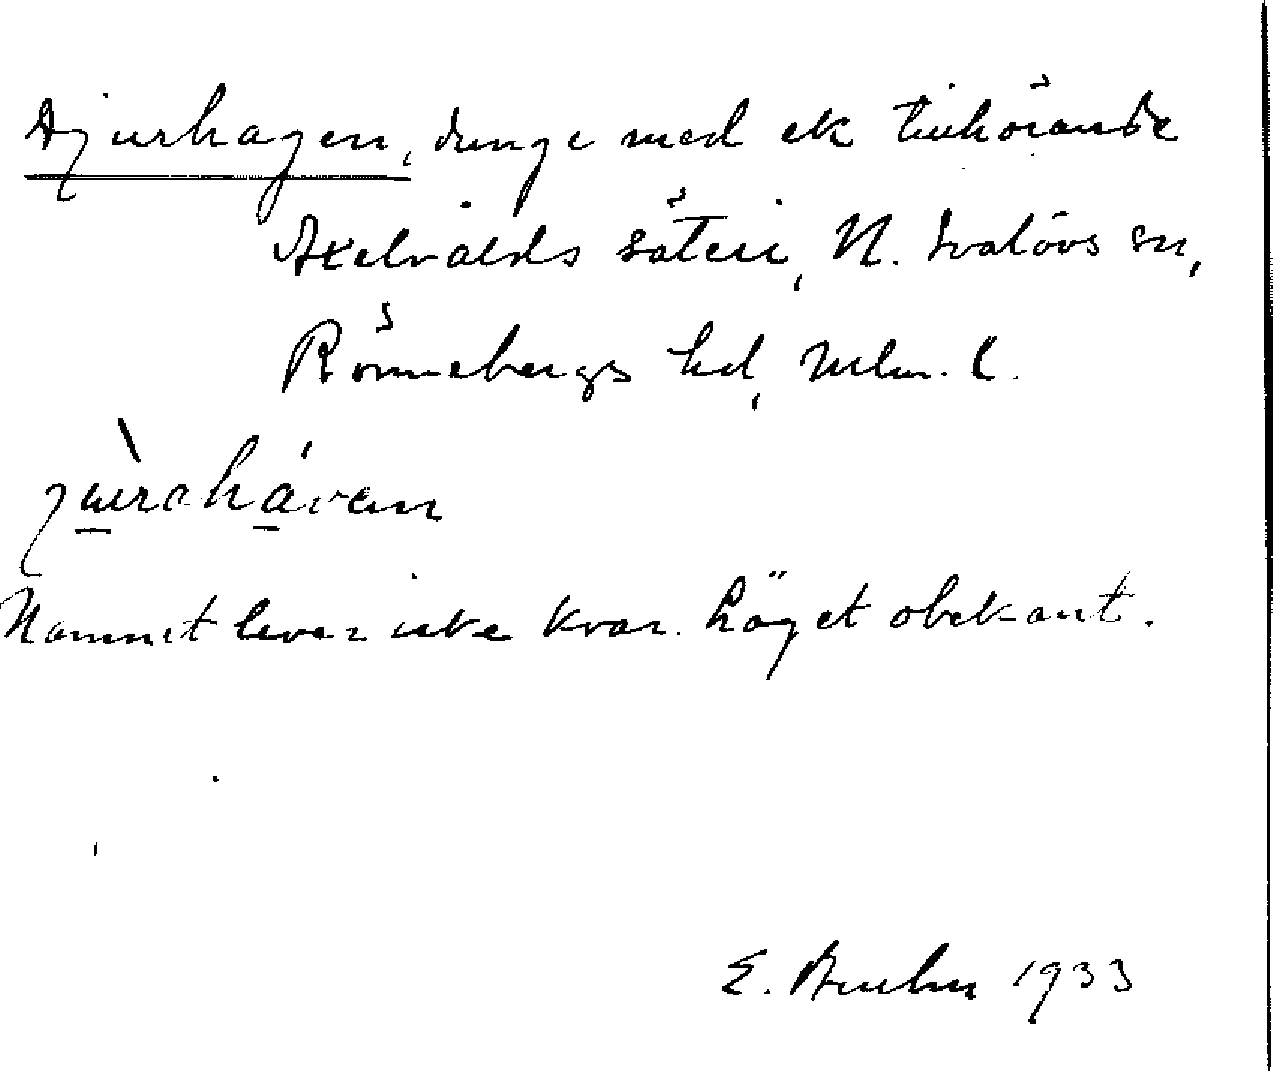 Djurhagen, dunge med ek tillhörande
Axelvålds säteri, N. Svalövs sn,
Rönnebergs hd, Mlm. l.
Namnet lever icke kvar. Läget obekant.
E. Bruhn 1933